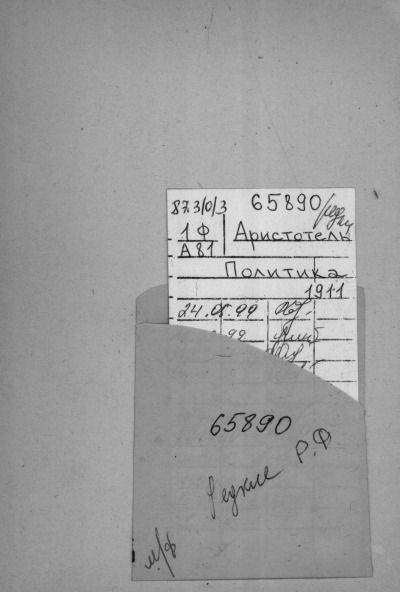 87.3/0/3 65890
1Ф
А81 Аристотель
Политика
1911
24. 99
99
65890
Редкие Р.Ф.
м/ф